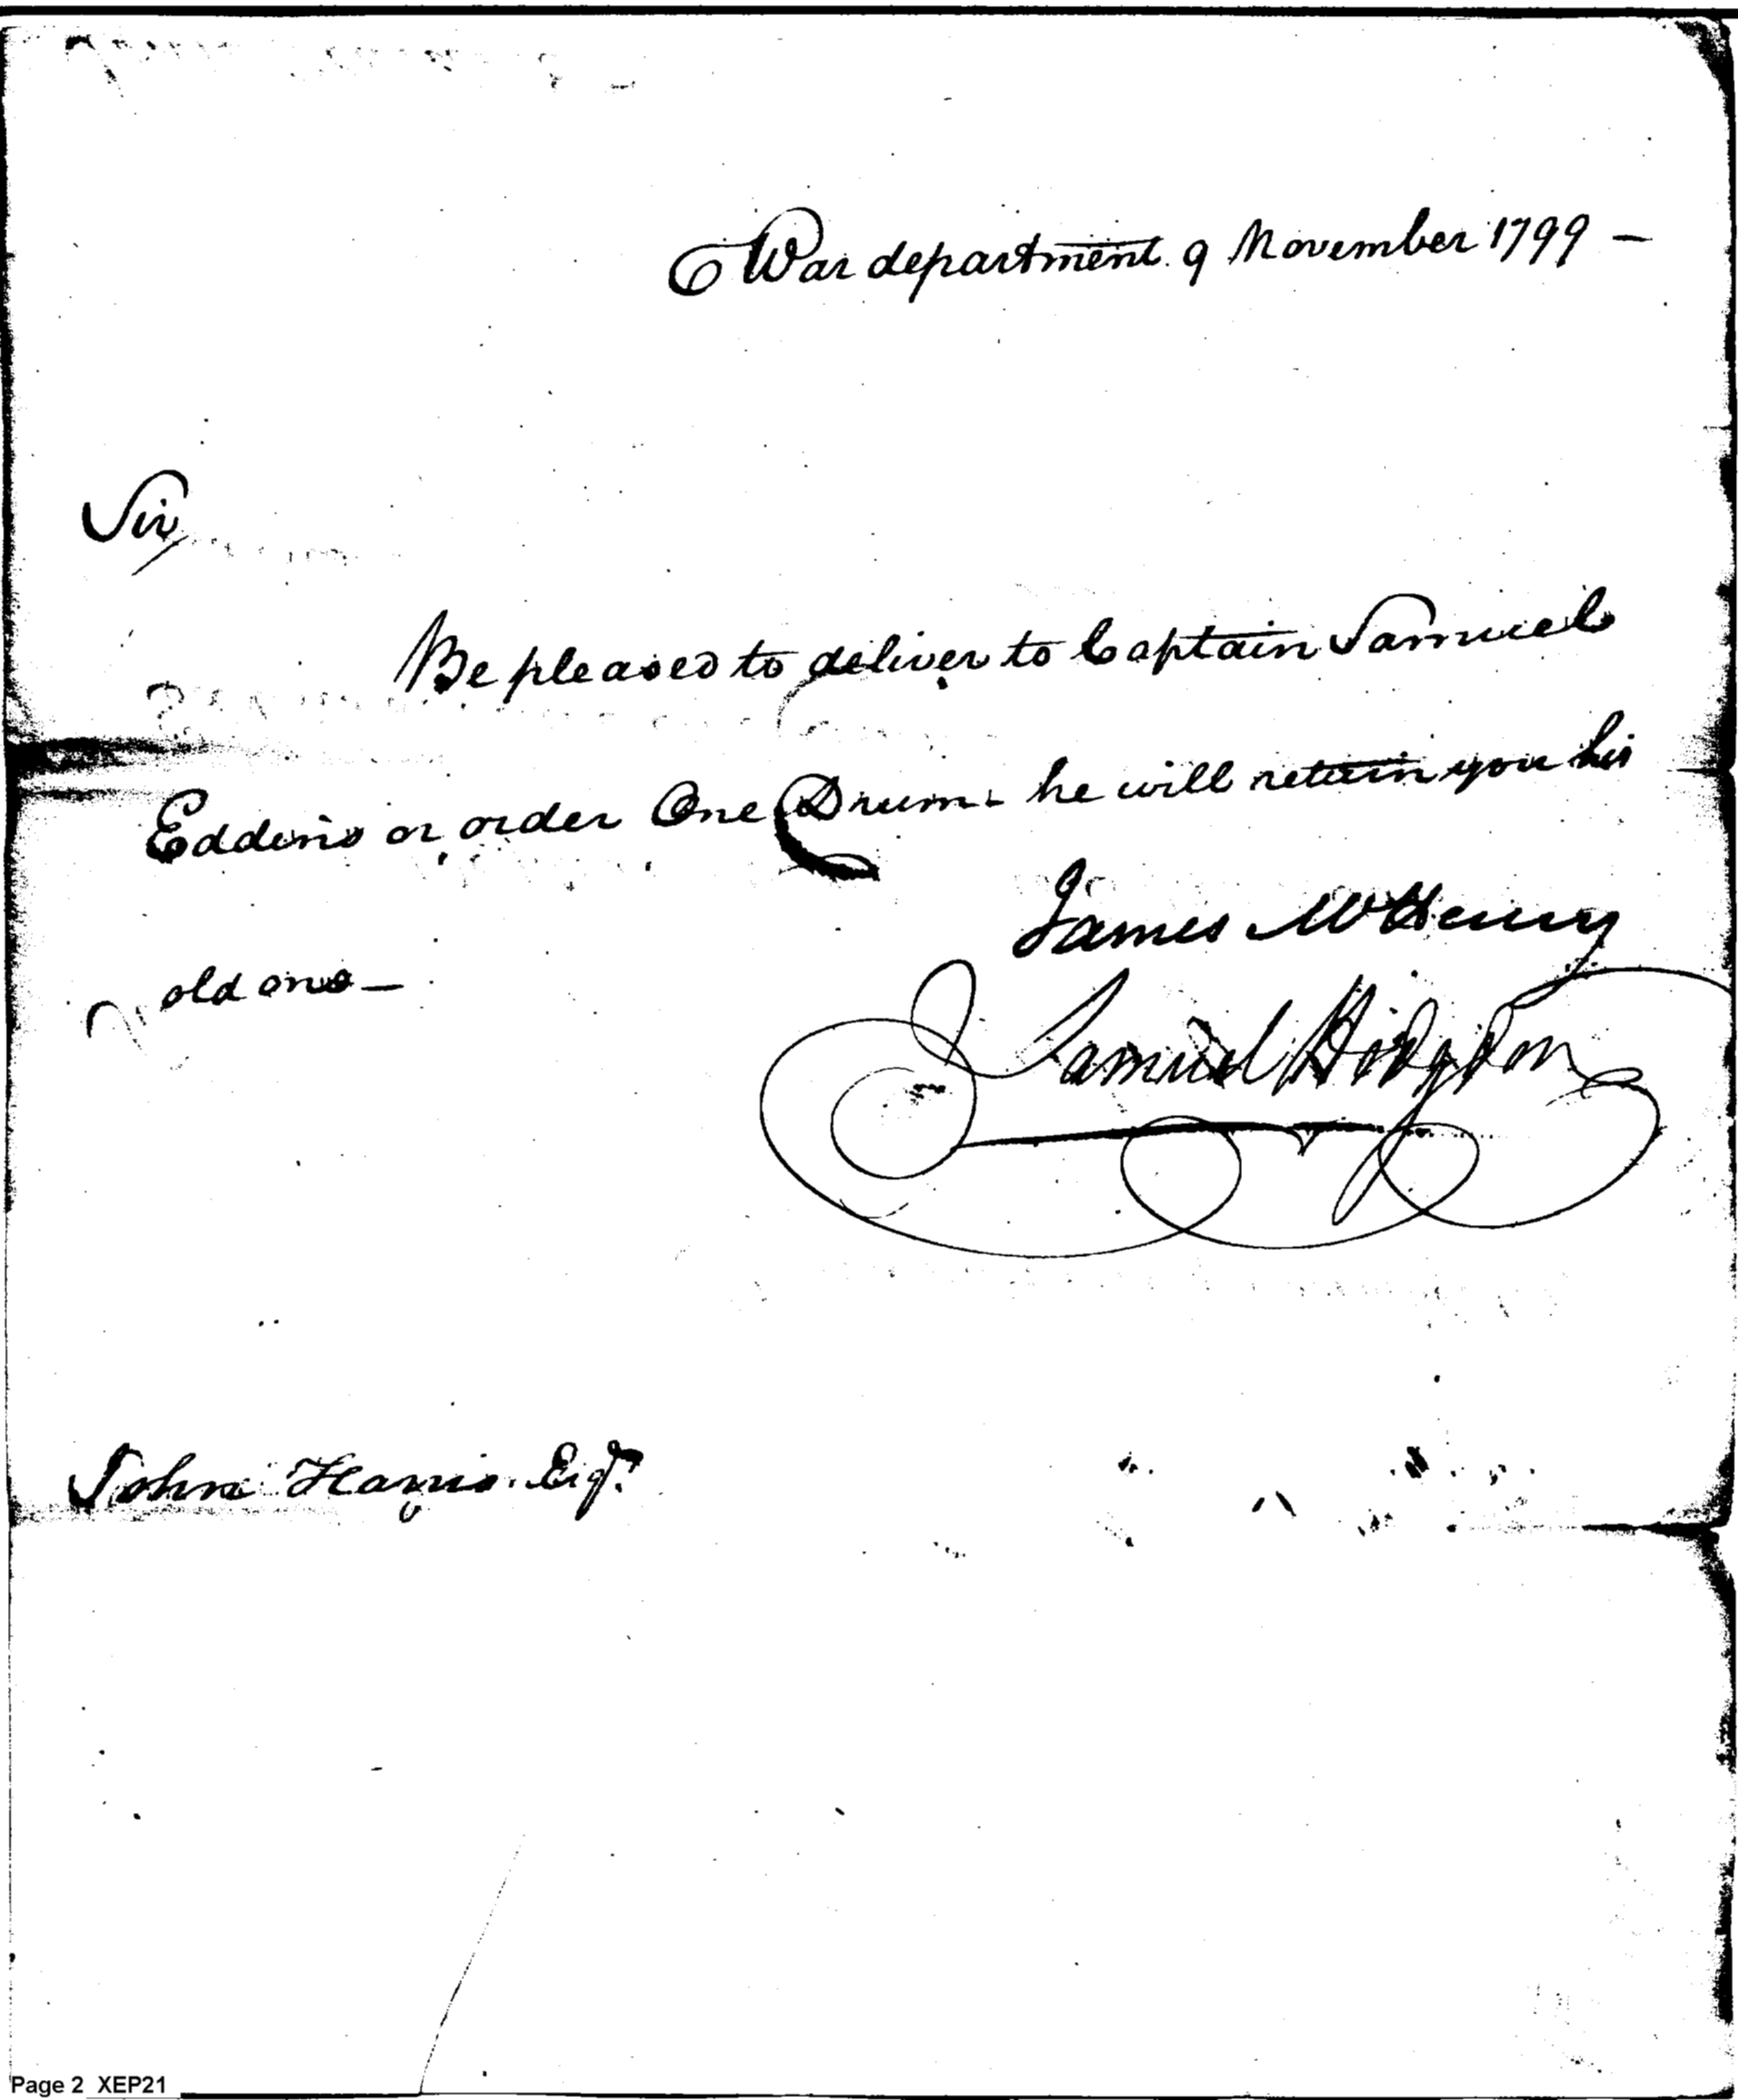 War department. 9 November 1799 —
Sir,
Be pleased to deliver to Captain Samuel
Eddins or order One Drum - he will return you his
old one —
James McHenry
Samuel Hodgdon
John Harris. Esqr.
Page 2 XEP21